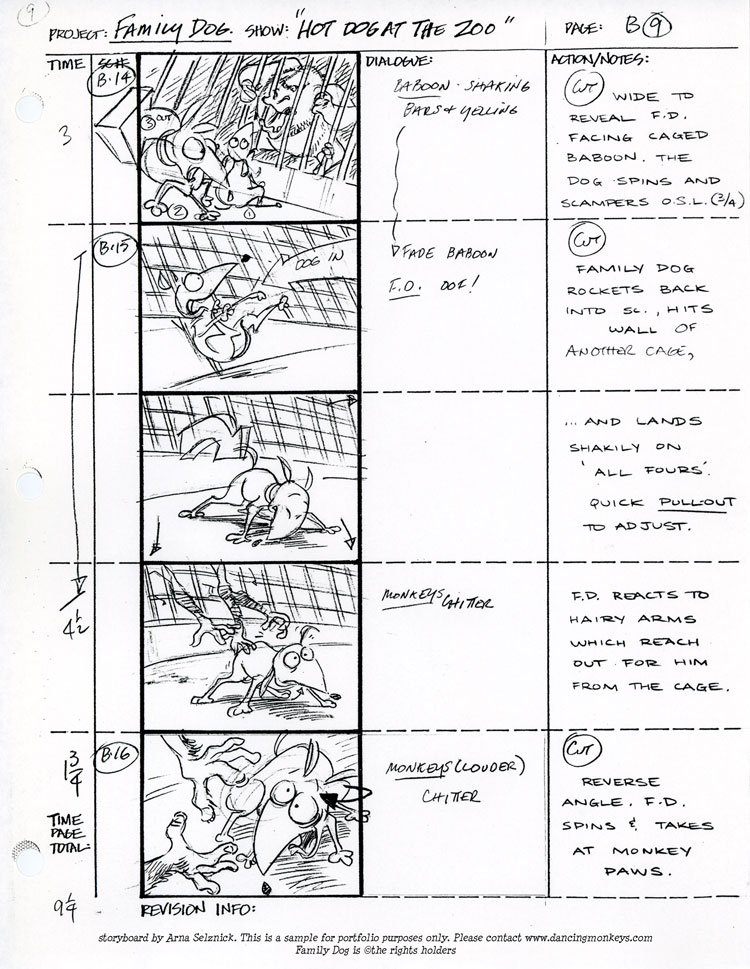 9
PROJECT: FAMILY DOG. SHOW: "HOT DOG AT THE ZOO" PAGE: B 9
TIME SC# DIALOGUE: ACTION/NOTES:
B·14
3
3 OUT
2
1
BABOON - SHAKING
BARS & YELLING
CUT
WIDE TO
REVEAL F.D.
FACING CAGED
BABOON. THE
DOG SPINS AND
SCAMPERS O.S.L. (3/4)
B·15
DOG IN
FADE BABOON
F.D. OOF!
CUT
FAMILY DOG
ROCKETS BACK
INTO SC., HITS
WALL OF
ANOTHER CAGE,
... AND LANDS
SHAKILY ON
'ALL FOURS'.
QUICK PULL-OUT
TO ADJUST.
4 1/2
MONKEYS CHITTER
F.D. REACTS TO
HAIRY ARMS
WHICH REACH
OUT FOR HIM
FROM THE CAGE.
1 3/4
B·16
MONKEYS (LOUDER)
CHITTER
CUT
REVERSE
ANGLE. F.D.
SPINS & TAKES
AT MONKEY
PAWS.
TIME
PAGE
TOTAL:
9 1/4
REVISION INFO:
storyboard by Arna Selznick. This is a sample for portfolio purposes only. Please contact www.dancingmonkeys.com
Family Dog is ©the rights holders